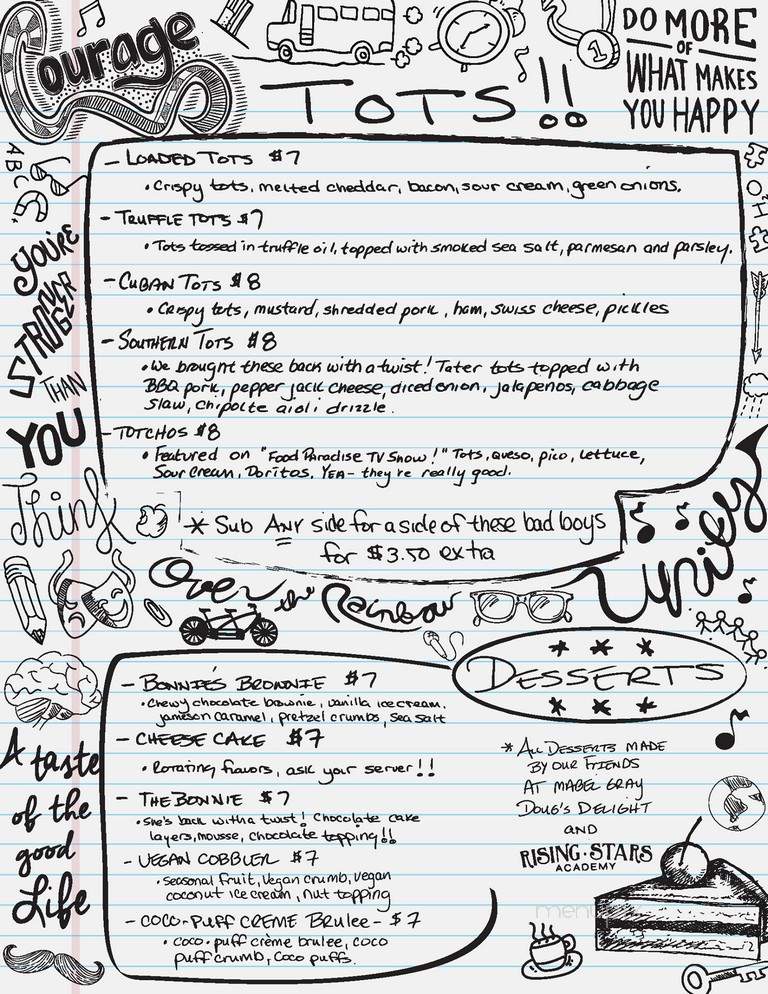 Courage
DO MORE
OF
WHAT MAKES
YOU HAPPY
1
TOTS!!
A B C
YOU'RE
STRONGER
THAN
YOU
Think
- LOADED TOTS $7
• Crispy tots, melted cheddar, bacon, sour cream, green onions.
- TRUFFLE TOTS $7
• Tots tossed in truffle oil, topped with smoked sea salt, parmesan and parsley.
- CUBAN TOTS $8
• Crispy tots, mustard, shredded pork, ham, swiss cheese, pickles
- SOUTHERN TOTS $8
• We brought these back with a twist! Tater tots topped with
BBQ pork, pepper jack cheese, diced onion, jalapenos, cabbage
slaw, chipolte aioli drizzle.
- TOTCHOS $8
• Featured on "Food Paradise TV Show!" Tots, queso, pico, lettuce,
Sour Cream, Doritos. YEA- they're really good.
* Sub ANY side for a side of these bad boys
for $3.50 extra
Unity
Over the Rainbow
DESSERTS
- BONNIE'S BROWNIE $7
• Chewy chocolate brownie, vanilla ice cream,
jameson caramel, pretzel crumbs, sea salt
- CHEESE CAKE $7
• Rotating flavors, ask your server!!
- THE BONNIE $7
• She's back with a twist! Chocolate cake
layers, mousse, chocolate topping!!
- VEGAN COBBLER $7
• seasonal fruit, vegan crumb, vegan
coconut ice cream, nut topping
- COCO-PUFF CREME BRULEE - $7
• coco-puff crème brulee, coco
puff crumb, coco puffs.
* ALL DESSERTS MADE
BY OUR FRIENDS
AT MABEL GRAY
DOUG'S DELIGHT
AND
RISING·STARS
ACADEMY
A taste
of the
good
Life